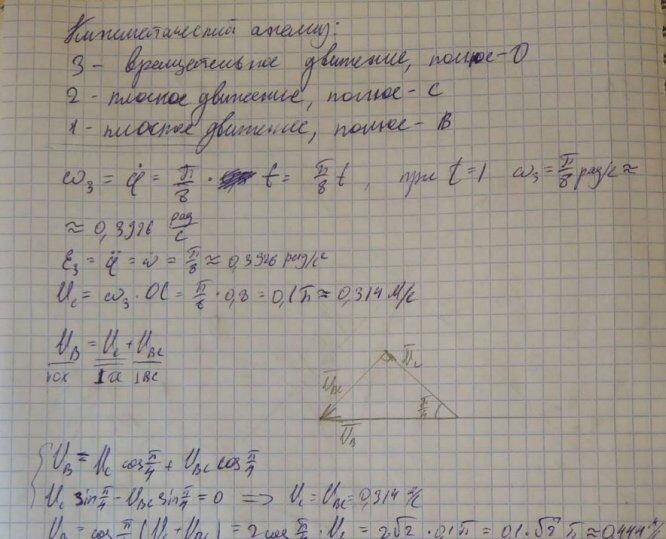 Кинематический анализ:
3 - вращательное движение, полюс - O
2 - плоское движение, полюс - C
1 - плоское движение, полюс - B
ω₃ = φ̇ = π/8 · t = π/8 t, при t=1 ω₃ = π/8 рад/с ≈
≈ 0,3926 рад/с
ε₃ = φ̈ = ω = π/8 ≈ 0,3926 рад/с²
U_C = ω₃ · OC = π/8 · 0,8 = 0,1π ≈ 0,314 м/с
U̅_B = U̅_C + U̅_BC
U̅_C
U̅_BC
π/4
U̅_B
U_B = U_C cos π/4 + U_BC cos π/4
U_C sin π/4 - U_BC sin π/4 = 0 ⇒ U_C = U_BC = 0,314 м/с
U_B = cos π/4 (U_C + U_BC) = 2 cos π/4 · U_C = 2√2 · 0,1π = 0,1 · √2 π ≈ 0,444 м/с